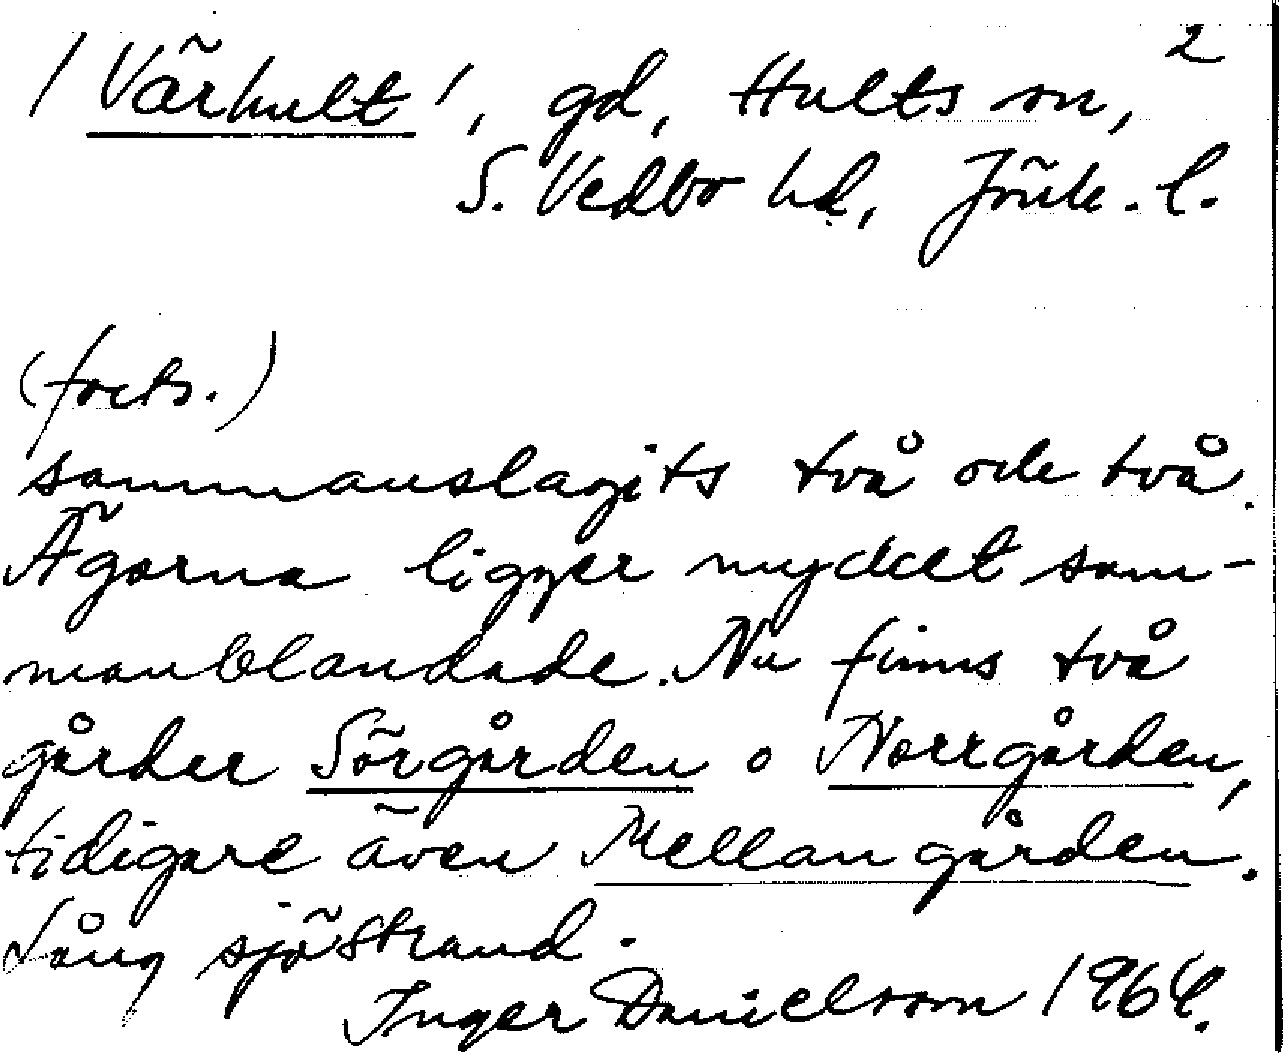 2
/Värhult/, gd, Hults sn,
S. Vedbo hd, Jönk. l.
(forts.)
sammanslagits två och två.
Ägorna ligger mycket sam-
manblandade. Nu finns två
gårder Sörgården o Norrgården,
tidigare även Mellangården.
Lång sjöstrand.
Inger Danielsson 1964.